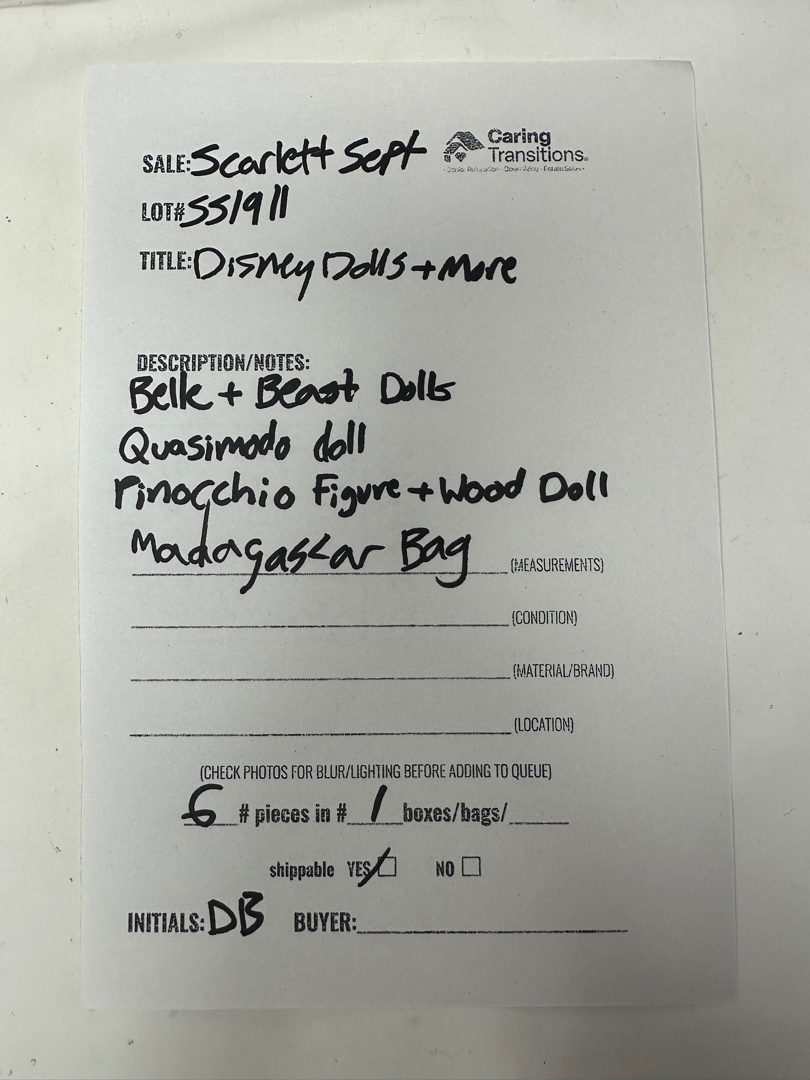 Caring
Transitions
SALE: Scarlett Sept
LOT# SS1911
TITLE: Disney Dolls + More
DESCRIPTION/NOTES:
Belle + Beast Dolls
Quasimodo doll
Pinocchio Figure + Wood Doll
Madagascar Bag (MEASUREMENTS)
(CONDITION)
(MATERIAL/BRAND)
(LOCATION)
(CHECK PHOTOS FOR BLUR/LIGHTING BEFORE ADDING TO QUEUE)
6 # pieces in # 1 boxes/bags/
shippable YES NO
INITIALS: DB BUYER: